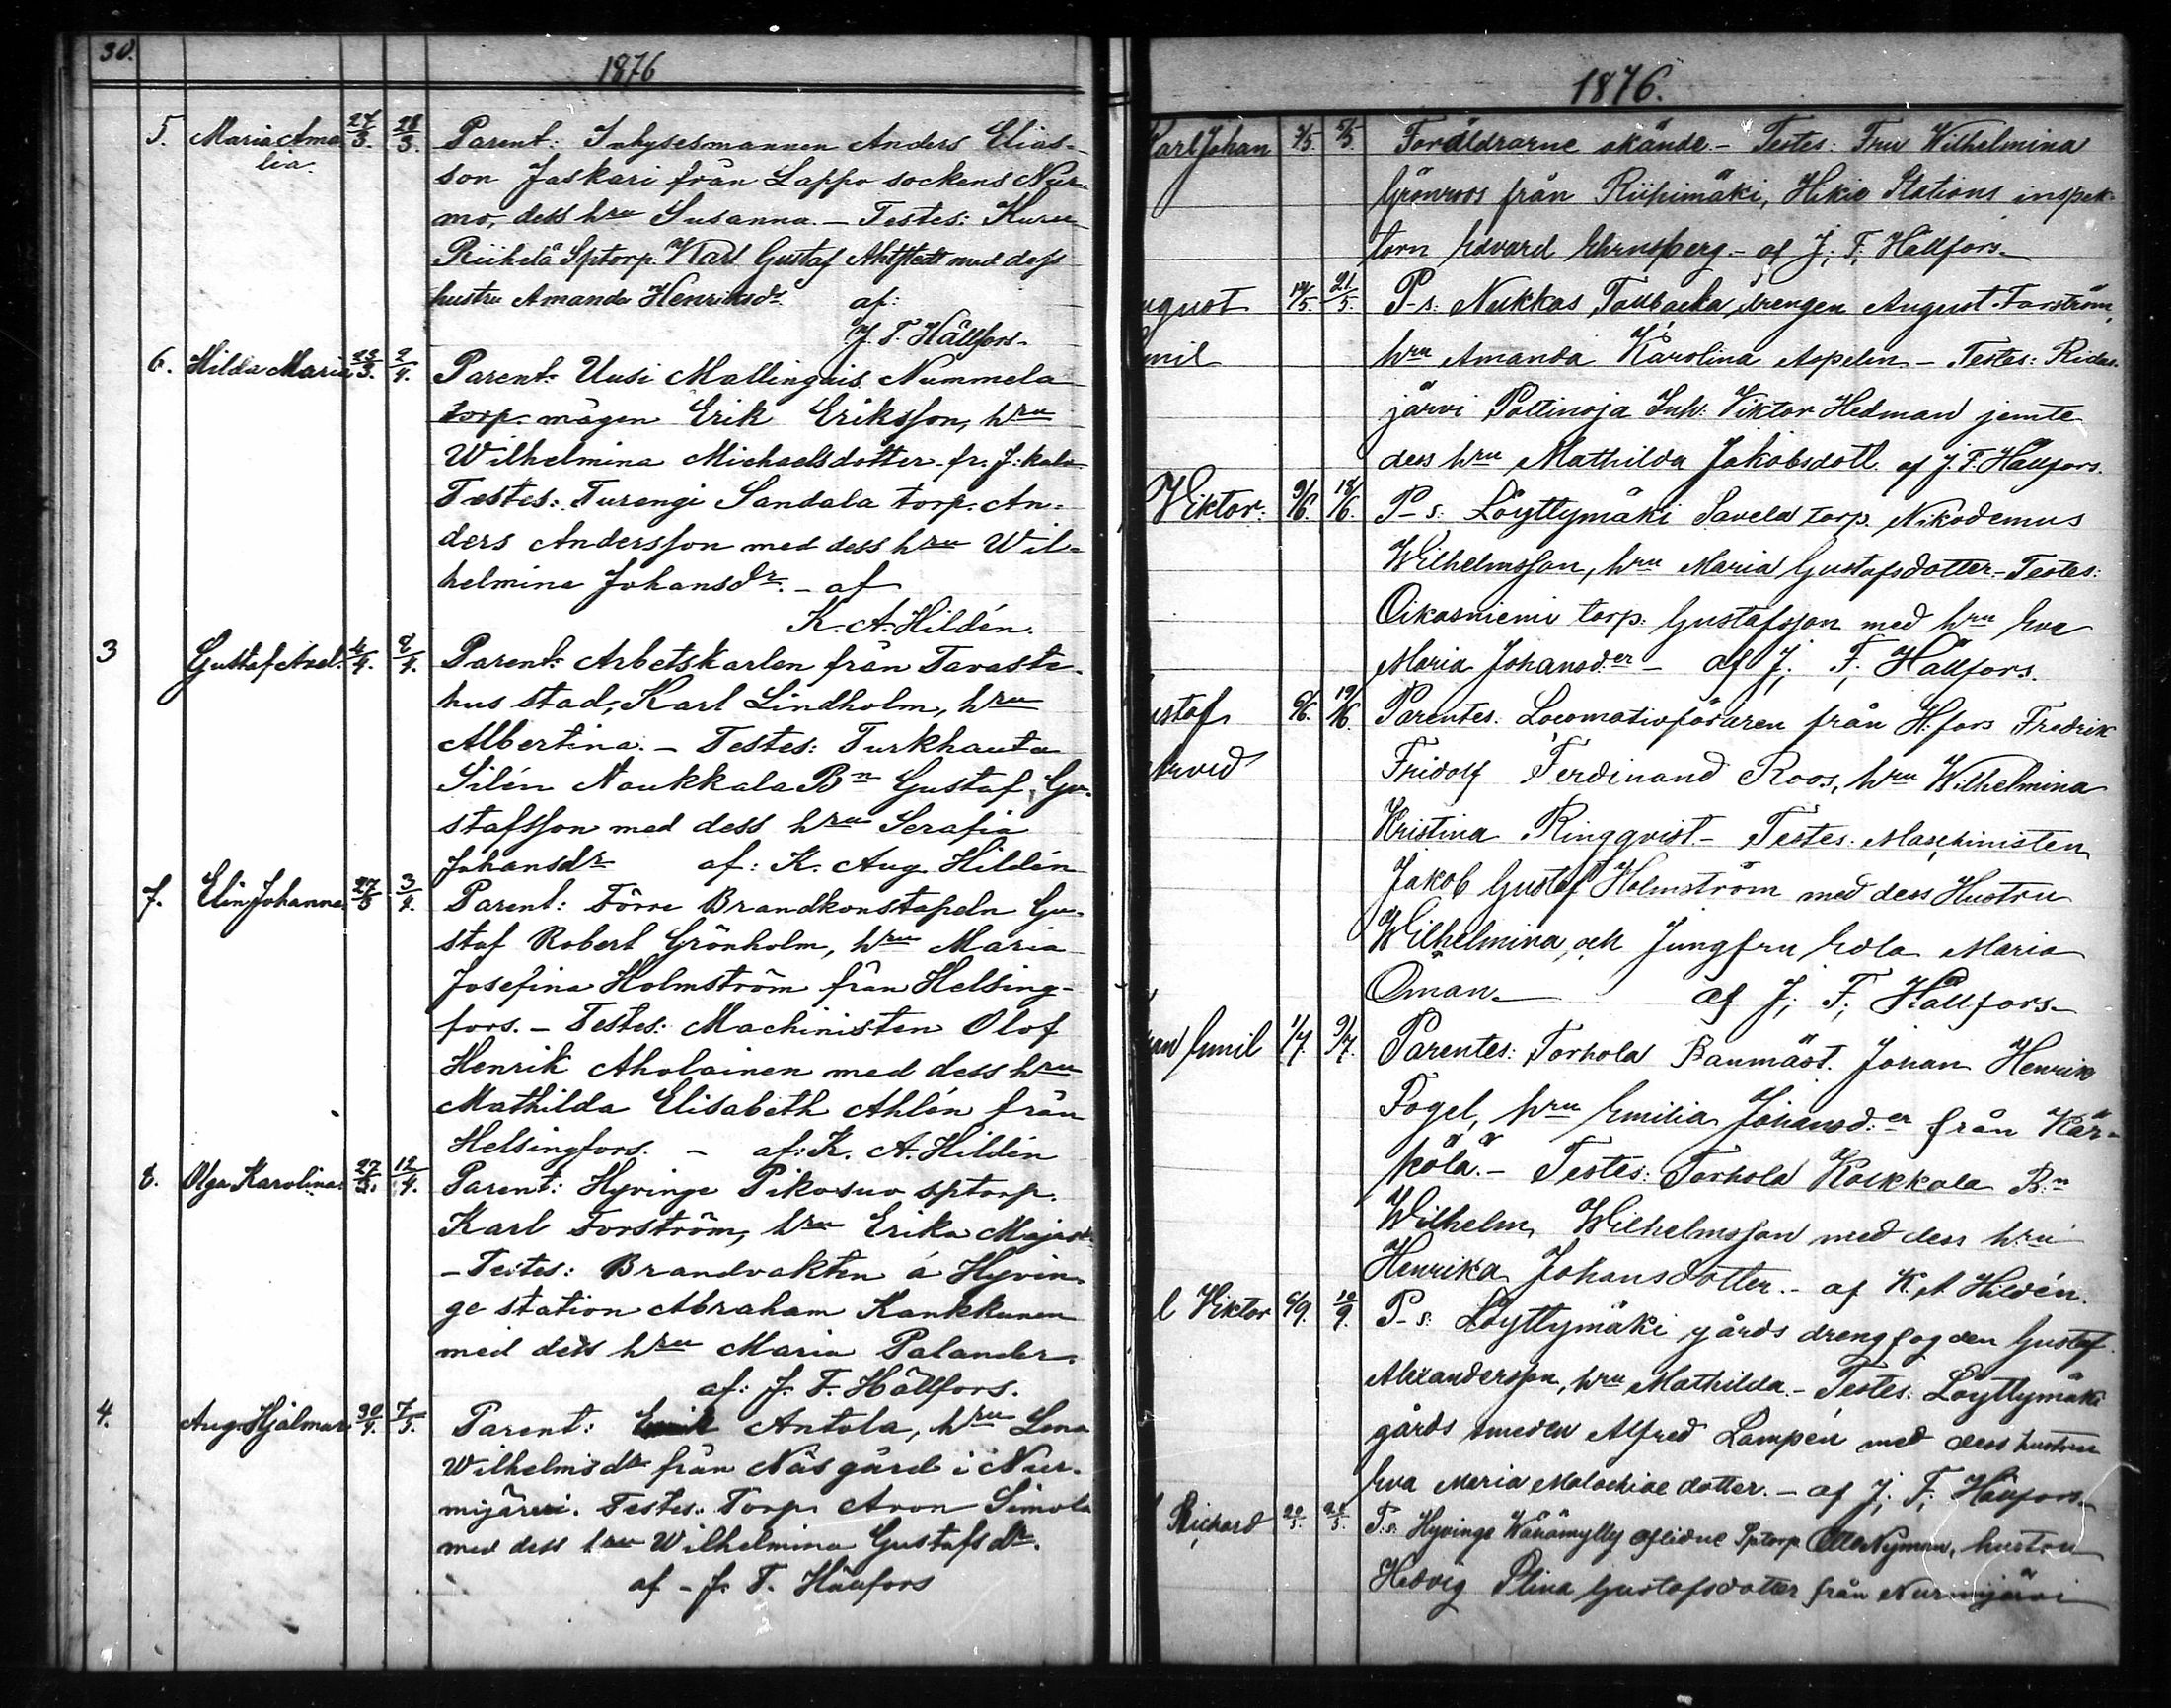 30.
1876
5. Maria Ama- 27/3. 28/3. Parent: Inhysesmannen Anders Elias-
lia.
son Jaskari från Lappo sockens Nur-
mo, dess hru Susanna. – Testes: Kuru
Riihelä Sptorp. Karl Gustaf Ahlstedt med dess
hustru Amanda Henriksdr. af:
J. F. Hällfors.
6. Hilda Maria 23/3. 2/4. Parent: Uusi Mallinguis Nummela
torp. mågen Erik Eriksson, hru
Wilhelmina Michaelsdotter fr. J:kala
Testes: Turengi Sandala torp. An-
ders Andersson med dess hru Wil-
helmina Johansdr. – af
K. A. Hildén.
3 Gustaf Axel. 4/4. 8/4. Parent: Arbetskarlen från Tavaste-
hus stad, Karl Lindholm, hru
Albertina. – Testes: Turkhauta
Silén Naukkala Bn Gustaf Gu-
stafsson med dess hru Serafia
Johansdr af: K. Aug. Hildén
7. Elin Johanna. 27/3 3/4. Parent: Förre Brandkonstapeln Gu-
staf Robert Grönholm, hru Maria
Josefina Holmström från Helsing-
fors. – Testes: Machinisten Olof
Henrik Aholainen med dess hru
Mathilda Elisabeth Ahlén från
Helsingfors. – af: K. A. Hildén
8. Olga Karolina. 27/3. 12/4. Parent: Hyvinge Pikosuo sptorp.
Karl Forström, hru Erika Majasdr
– Testes: Brandvakten å Hyvin-
ge station Abraham Kankkunen
med dess hru Maria Palander.
af: J. F. Hällfors.
4. Aug. Hjalmar 30/4. 7/5. Parent: Antola, hru Lena
Wilhelmsdr från Näs gård i Nur-
mijärvi. Testes: Torp. Aron Simola
med dess hru Wilhelmina Gustafsdr.
af – J. F. Hällfors
1876.
Karl Johan 3/5. 5/5. Föräldrarne okände. – Testes: Fru Wilhelmina
Grönroos från Riihimäki, Hikiö Stations inspek-
torn Edvard Ehrnsberg. – af J. F. Hällfors.
ugust 14/5. 21/5. P-s: Nukkas, Tallbacka drengen August Forström,
mil hru Amanda Karolina Aspelin – Testes: Ridas-
järvi Pollinoja Inh: Viktor Hedman jemte
dess hru Mathilda Jakobsdott. af J. F. Hällfors.
Viktor: 9/6. 18/6. P-s: Löyttymäki Savela torp. Nikodemus
Wilhelmsson, hru Maria Gustafsdotter. – Testes:
Oikasniemi torp: Gustafsson med hru Eva
Maria Johansd:er – af J. F. Hällfors.
ustaf 6/6. 19/6. Parentes: Locomotivföraren från H:fors Fredrik
Arvid Fridolf Ferdinand Roos, hru Wilhelmina
Kristina Ringqvist. – Testes. Maschinisten
Jakob Gustaf Holmström med dess Hustru
Wilhelmina, och Jungfru Edla Maria
Öman. – af J. F. Hällfors.
an Emil 1/7. 9/7. Parentes: Torhola Banmäst. Johan Henrik
Fogel, hru Emilia Johansd:er från Kär-
kölä. – Testes: Torhola Kolkkala B:n
Wilhelm Wilhelmsson med dess hru
Henrika Johansdotter. – af K. A. Hildén.
l Viktor 6/9. 10/9. P-s: Löyttymäki gårds drengfogden Gustaf
Alexandersson, hru Mathilda. – Testes: Löyttymäki
gårds smeden Alfred Lampén med dess hustru
Eva Maria Malachiae dotter. – af J. F. Hällfors.
Richard P-s: Hyvinge Wäänämylly aflidne Sptorp. Otto Nyman, hustru
Hedvig Plina Gustafsdotter från Nurmijärvi